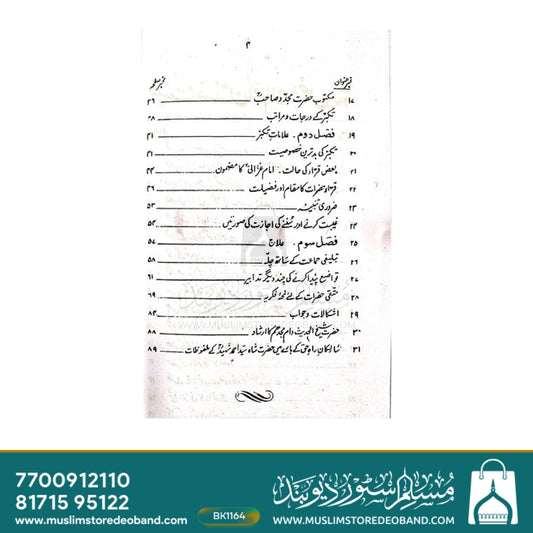 ۴
نمبر عنوان نمبر صفحہ
۱۷ مکتوب حضرت مجدد صاحبؒ ۳۶
۱۸ تکبر کے درجات و مراتب ۳۸
۱۹ فصل دوم۔ علامات تکبر ۴۱
۲۰ تکبر کی بدترین خصوصیت ۴۱
۲۱ بعض قراء کی حالت۔ امام غزالیؒ کا مضمون ۴۴
۲۲ قراء حضرات کا مقام اور فضیلت ۴۶
۲۳ ضروری تنبیہ ۵۲
۲۴ غیبت کرنے اور سننے کی اجازت کی صورتیں ۵۳
۲۵ فصل سوم۔ علاج ۵۴
۲۶ تبلیغی جماعت کے ساتھ چلہ ۵۸
۲۷ تواضع پیدا کرنے کی چند دیگر تدابیر ۶۱
۲۸ حضرات کے لئے لمحۂ فکریہ ۶۹
۲۹ اشکالات و جواب ۸۳
۳۰ حضرت شیخ الحدیث دام مجدہم کا ارشاد ۸۸
۳۱ سالکان راہ حق کے بارے میں حضرت شاہ سید احمد شہیدؒ کے ملفوظات ۸۹
7700912110
81715 95122
www.muslimstoredeoband.com
BK1164
مسلم سٹور دیوبند
WWW.MUSLIMSTOREDEOBAND.COM